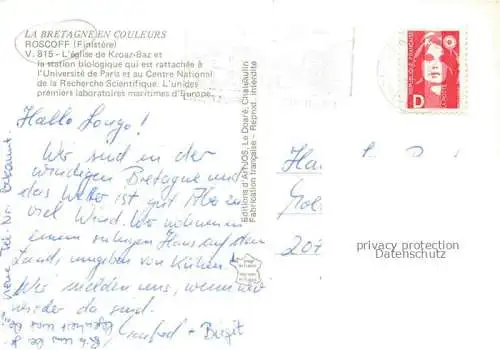 LA BRETAGNE EN COULEURS
ROSCOFF (Finistère)
V. 815 - L'église de Kroaz-Baz et
la station biologique qui est rattachée à
l'Université de Paris et au Centre National
de la Recherche Scientifique. L'un des
premiers laboratoires maritimes d'Europe.
Hallo
Wir sind in der
windigen Bretagne und
das Wetter ist gut. Aber
viel Wind. Wir wohnen in
einem ruhigen Haus auf dem
Land, umgeben von Kühen!
Wir melden uns, wenn wir
wieder da sind.
+ Birgit
neue Tel. Nr. bekannt.
Editions d'Art JOS, Le Doaré, Chateaulin
Fabrication française - Reprod. interdite
REPUBLIQUE FRANÇAISE
LA POSTE
D
privacy protection
Datenschutz